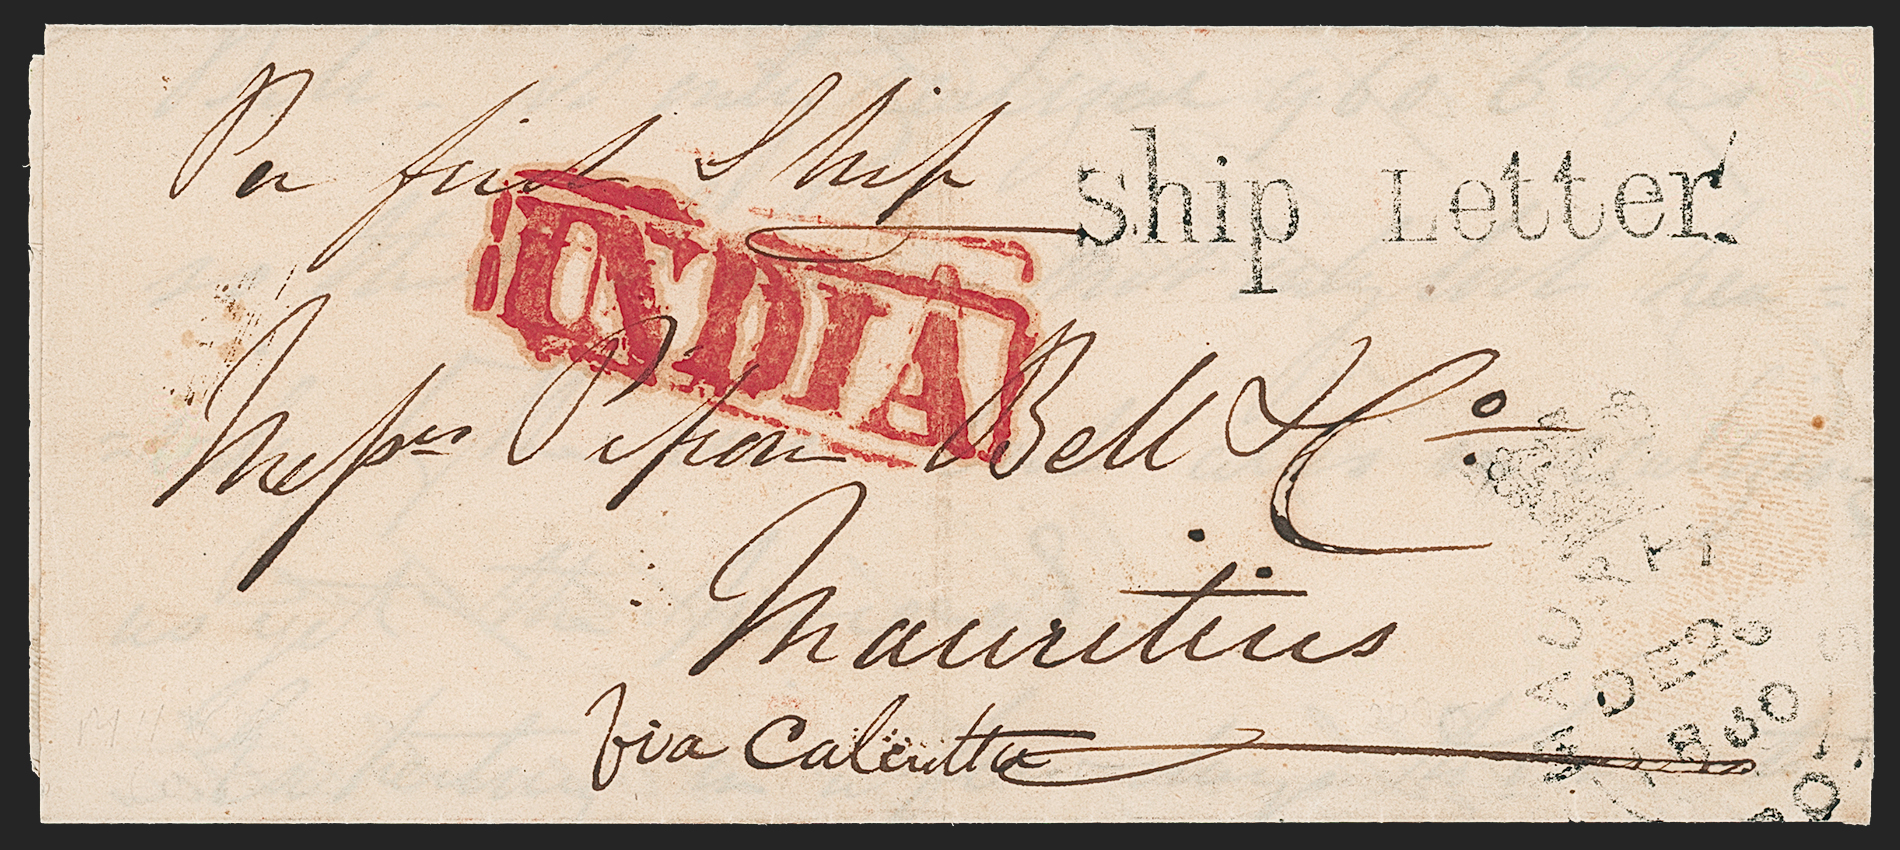 Per first Ship
Ship Letter
INDIA
Messrs Pipon Bell & Co.
Mauritius
Via Calcutta
MAURITI
DE 28
1830
PO